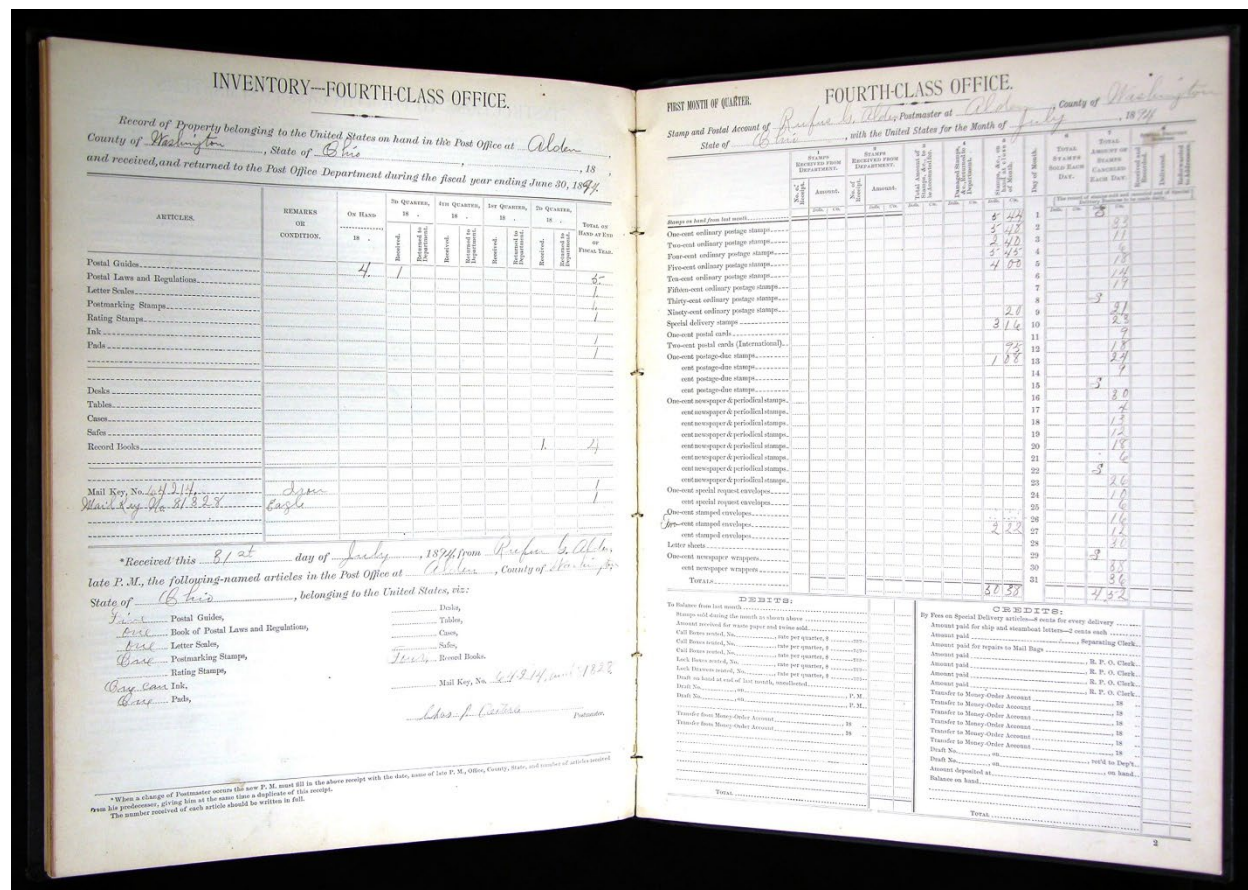 INVENTORY—FOURTH-CLASS OFFICE.
Record of Property belonging to the United States on hand in the Post Office at Alden,
County of Washington, State of Ohio, , 18 ,
and received, and returned to the Post Office Department during the fiscal year ending June 30, 1894.
ARTICLES. REMARKS OR CONDITION. ON HAND 18 . 3D QUARTER, 18 . 4TH QUARTER, 18 . 1ST QUARTER, 18 . 2D QUARTER, 18 . TOTAL ON HAND AT END OF FISCAL YEAR.
Received. Returned to Department. Received. Returned to Department. Received. Returned to Department. Received. Returned to Department.
Postal Guides 4. 1 5
Postal Laws and Regulations 1
Letter Scales 1
Postmarking Stamps 1
Rating Stamps
Ink 1
Pads 1
Desks
Tables
Cases
Safes
Record Books 1 4
Mail Key, No. 64214 Iron 1
Mail Key No. 81828 Eagle 1
*Received this 31st day of July, 1894, from Rufus G. Alden,
late P. M., the following-named articles in the Post Office at Alden, County of Washington,
State of Ohio, belonging to the United States, viz:
Five Postal Guides,
One Book of Postal Laws and Regulations,
One Letter Scales,
One Postmarking Stamps,
Rating Stamps,
One Can Ink,
One Pads,
Desks,
Tables,
Cases,
Safes,
Four, Record Books.
Mail Key, No. 64214,
Postmaster.
*When a change of Postmaster occurs the new P. M. must fill in the above receipt with the date, name of late P. M., Office, County, State, and number of articles received
from his predecessor, giving him at the same time a duplicate of this receipt.
The number received of each article should be written in full.
FIRST MONTH OF QUARTER. FOURTH-CLASS OFFICE.
Stamp and Postal Account of Rufus G. Alden Postmaster at Alden, County of Washington
State of Ohio, with the United States for the Month of July, 1894
1 STAMPS RECEIVED FROM DEPARTMENT. 2 STAMPS RECEIVED FROM DEPARTMENT. Total Amount of Stamps, &c., to be Accounted for. Damaged Stamps, &c., Returned to Department. Stamps, &c., on hand at close of Month. Day of Month. TOTAL STAMPS SOLD EACH DAY. TOTAL AMOUNT OF STAMPS CANCELED EACH DAY.
No. of Receipt. Amount. No. of Receipt. Amount.
Stamps on hand from last month
One-cent ordinary postage stamps 5 44
Two-cent ordinary postage stamps 5 48
Four-cent ordinary postage stamps 2 40
Five-cent ordinary postage stamps 5 45
Ten-cent ordinary postage stamps 4 00
Fifteen-cent ordinary postage stamps
Thirty-cent ordinary postage stamps
Ninety-cent ordinary postage stamps
Special delivery stamps 20
One-cent postal cards 3 16
Two-cent postal cards (International)
One-cent postage-due stamps 95
cent postage-due stamps 1 08
cent postage-due stamps
cent postage-due stamps
One-cent newspaper & periodical stamps
cent newspaper & periodical stamps
cent newspaper & periodical stamps
cent newspaper & periodical stamps
cent newspaper & periodical stamps
cent newspaper & periodical stamps
cent newspaper & periodical stamps
cent newspaper & periodical stamps
One-cent special request envelopes
cent special request envelopes
One-cent stamped envelopes
Two-cent stamped envelopes 2 22
cent stamped envelopes
Letter sheets
One-cent newspaper wrappers
cent newspaper wrappers
TOTALS 30 38 4 52
1 S
2 33
3 11
4 6
5 18
6 14
7 19
8 S
9 21
10 23
11 9
12 18
13 24
14 9
15 S
16 30
17 4
18 13
19 12
20 18
21 6
22 S
23 26
24 10
25 6
26 16
27 12
28 31
29 S
30 38
31 36
DEBITS:
To Balance from last month
Stamps sold during the month as shown above
Amount received for waste paper and twine sold
Call Boxes rented, No. , rate per quarter, $
Call Boxes rented, No. , rate per quarter, $
Call Boxes rented, No. , rate per quarter, $
Lock Boxes rented, No. , rate per quarter, $
Lock Drawers rented, No. , rate per quarter, $
Draft on hand at end of last month, uncollected
Draft No. , on , P. M.
Draft No. , on , P. M.
Transfer from Money-Order Account , 18
Transfer from Money-Order Account , 18
TOTAL
CREDITS:
By Fees on Special Delivery articles—8 cents for every delivery
Amount paid for ship and steamboat letters—2 cents each
Amount paid , Separating Clerk
Amount paid for repairs to Mail Bags
Amount paid R. P. O. Clerk
Amount paid R. P. O. Clerk
Amount paid R. P. O. Clerk
Amount paid R. P. O. Clerk
Transfer to Money-Order Account , 18
Transfer to Money-Order Account , 18
Transfer to Money-Order Account , 18
Transfer to Money-Order Account , 18
Transfer to Money-Order Account , 18
Draft No. , on , ret'd to Dep't
Draft No. , on , on hand
Amount deposited at
Balance on hand
TOTAL
2